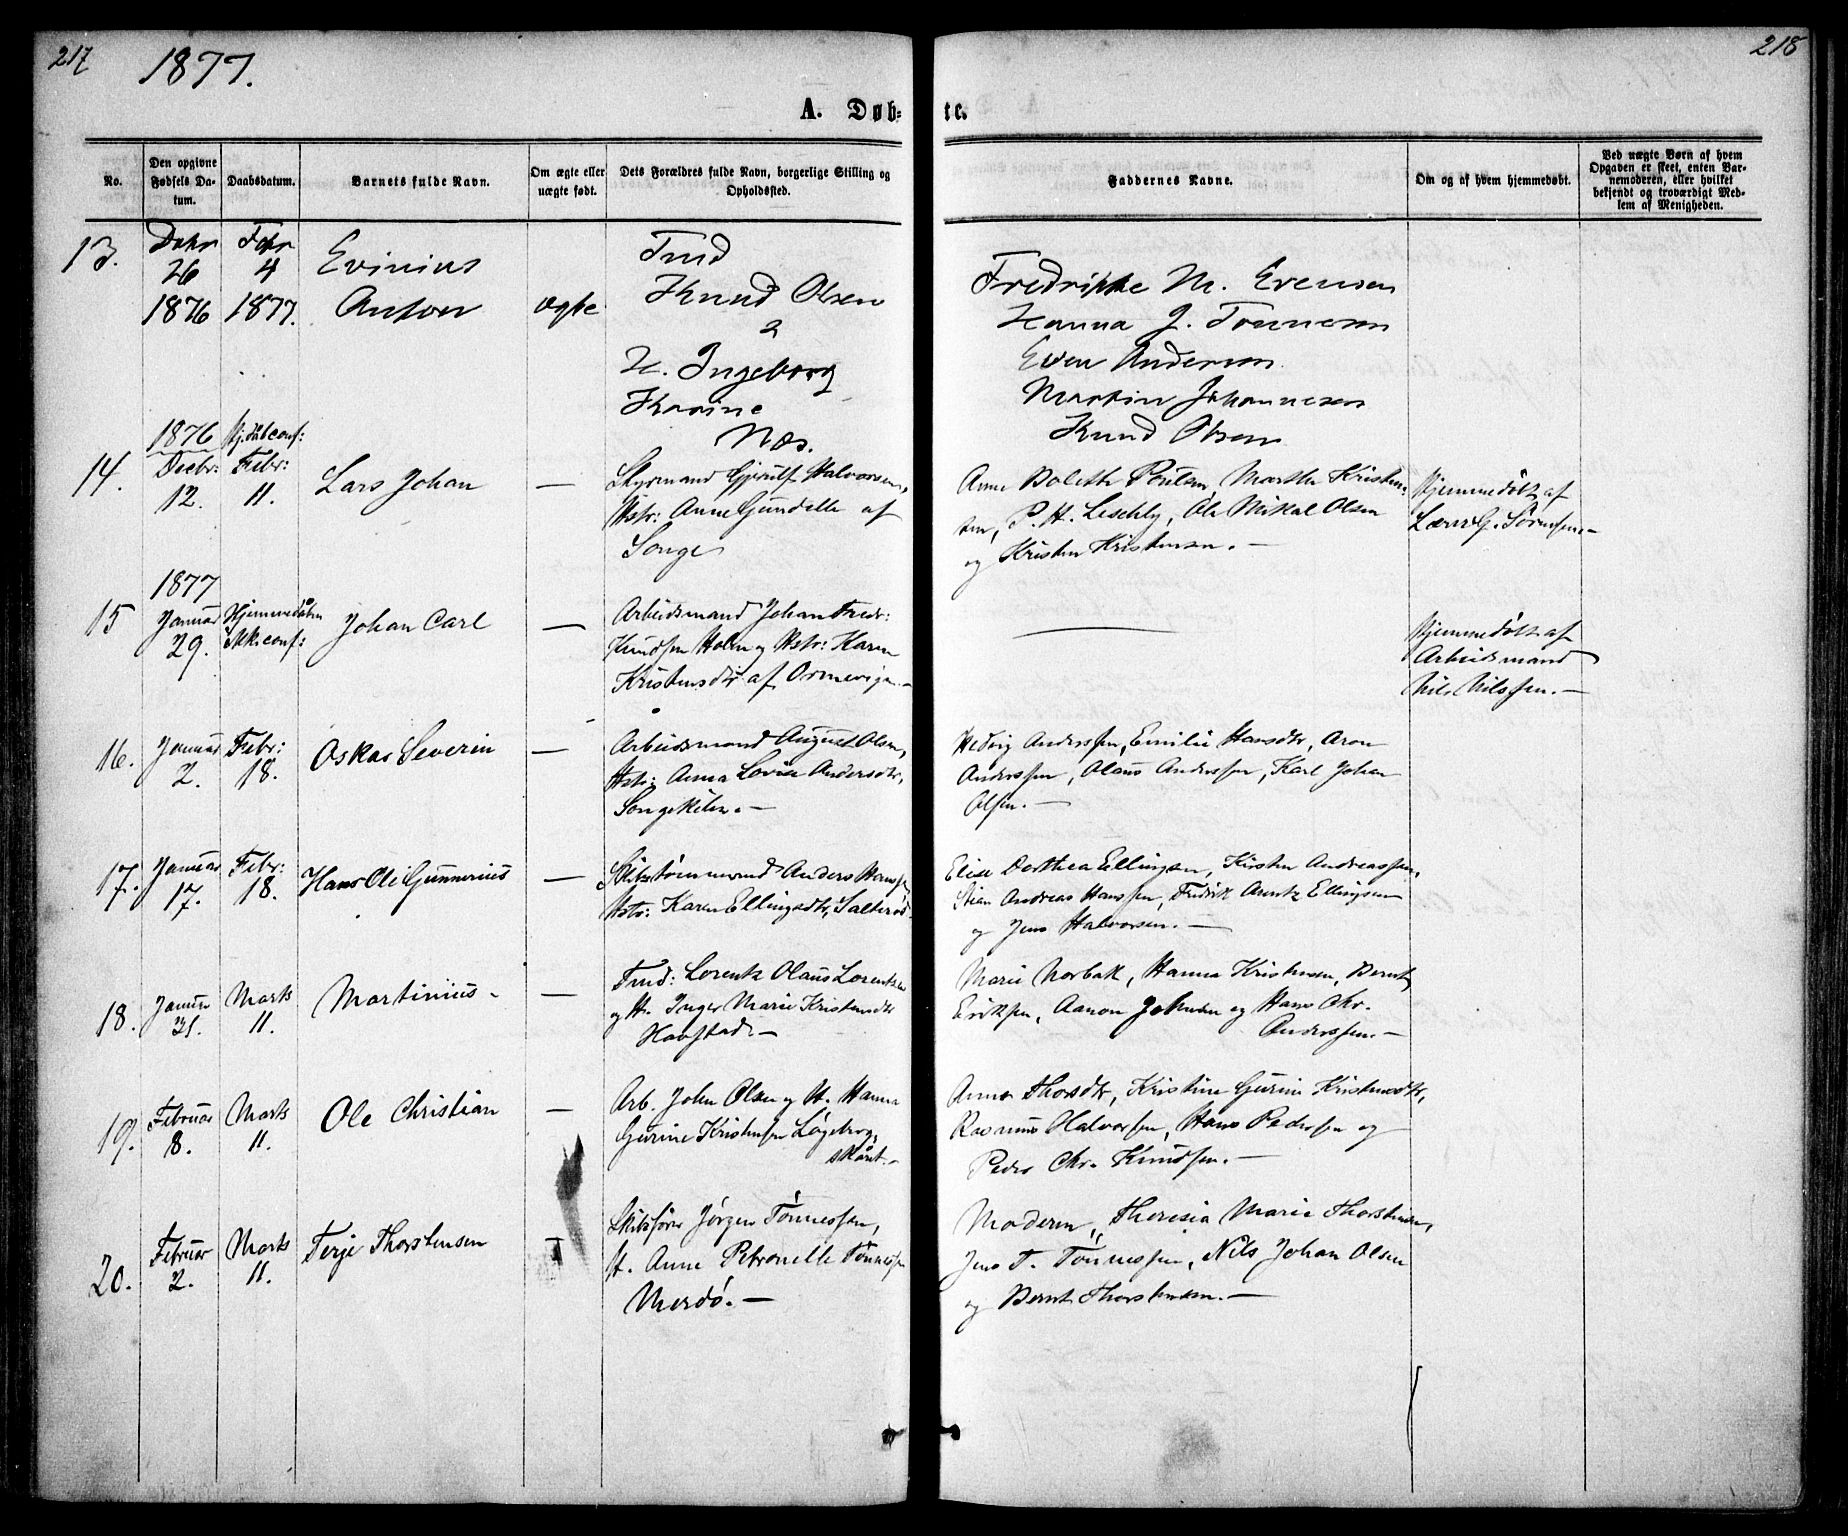 217
1877.
218
A. Døb-
te.
No.
Den opgivne Fødsels Da-
tum.
Daabsdatum.
Barnets fulde Navn.
Om ægte eller
uægte født.
Dets Forældres fulde Navn, borgerlige Stilling og
Opholdsted.
Faddernes Navne.
Om og af hvem hjemmedøbt.
Ved uægte Børn af hvem
Opgaven er skeet, enten Bar-
nemoderen, eller hvilket
bekjendt og troværdigt Med-
lem af Menigheden.
13.
Dcbr
26
1876
Febr
4
1877.
Evinius
Anton
ægte
Tmd
Knud Olsen
&
H. Ingeborg
Karine
Næs.
Fredrikke M. Evensen
Hanna J. Tønnesen
Even Anderson
Martin Johannesen
Knud Olsen
14.
1876
Decbr:
12.
Hj.døbt conf:
Febr:
11.
Lars Johan
—
Gjerulf Halvorsen,
Hstr: Anne Gundelle af
Songe
Anne Bolethe Poulsen, Marthe Kristen-
sen, P. H. Leschly, Ole Mikal Olsen
og Kristen Kristensen. —
Hjemmedøbt af
G. Sørensen. —
15
1877
Januar
29.
Hjemmedøbt
conf:
Johan Carl
—
Arbeidsmand Johan Fredr:
Knudsen Holm og Hstr: Karen
Kristensdtr af Ormevigen. —
—
Hjemmedøbt af
Arbeidsmand
Nils Nilssen. —
16.
Januar
2.
Febr:
18.
Oskar Severin
—
Arbeidsmand August Olsen,
Hstr: Anna Lovise Andersdtr,
Songekilen. —
Hedvig Anderssen, Emilie Hansdtr, Aron
Anderssen, Olaus Anderssen, Karl Johan
Olsen. —
17.
Januar
17.
Febr:
18.
Hans Ole Gunnerius
—
Skibstømmermand Anders Hanssen,
Hstr: Karen Ellingsdtr, Salterød.
Elise Dorthea Ellingsen, Kirsten Andreassen,
Stian Andreas Hanssen, Fredrik Arntz Ellingsen
og Jens Halvorsen. —
18.
Januar
31.
Marts
11.
Martinius.
—
Tmd: Lorentz Olaus Lorentzen
og H. Inger Marie Kristensdtr
Havstad. —
Marie Norbak, Hanna Kristensen, Bernt
Eriksen, Aanon Johnsen og Hans Chr.
Anderssen. —
19.
Februar
8.
Marts
11.
Ole Christian
—
Arb. John Olsen og H. Hanna
Gurine Kristensen Løgeberg,
Anne Thorsdtr, Kristine Gurine Kristensdtr,
Rasmus Halvorsen, Hans Pederssen og
Peder Chr. Knudsen. —
20.
Februar
2.
Marts
11.
Terje Thorstensen
Skibsfører Jørgen Tønnessen,
H. Anne Petronelle Tønnessen
Merdø. —
Moderen, Theresia Marie Thorstensen,
Jens T. Tønnessen, Nils Johan Olsen
og Bernt Thorstensen. —